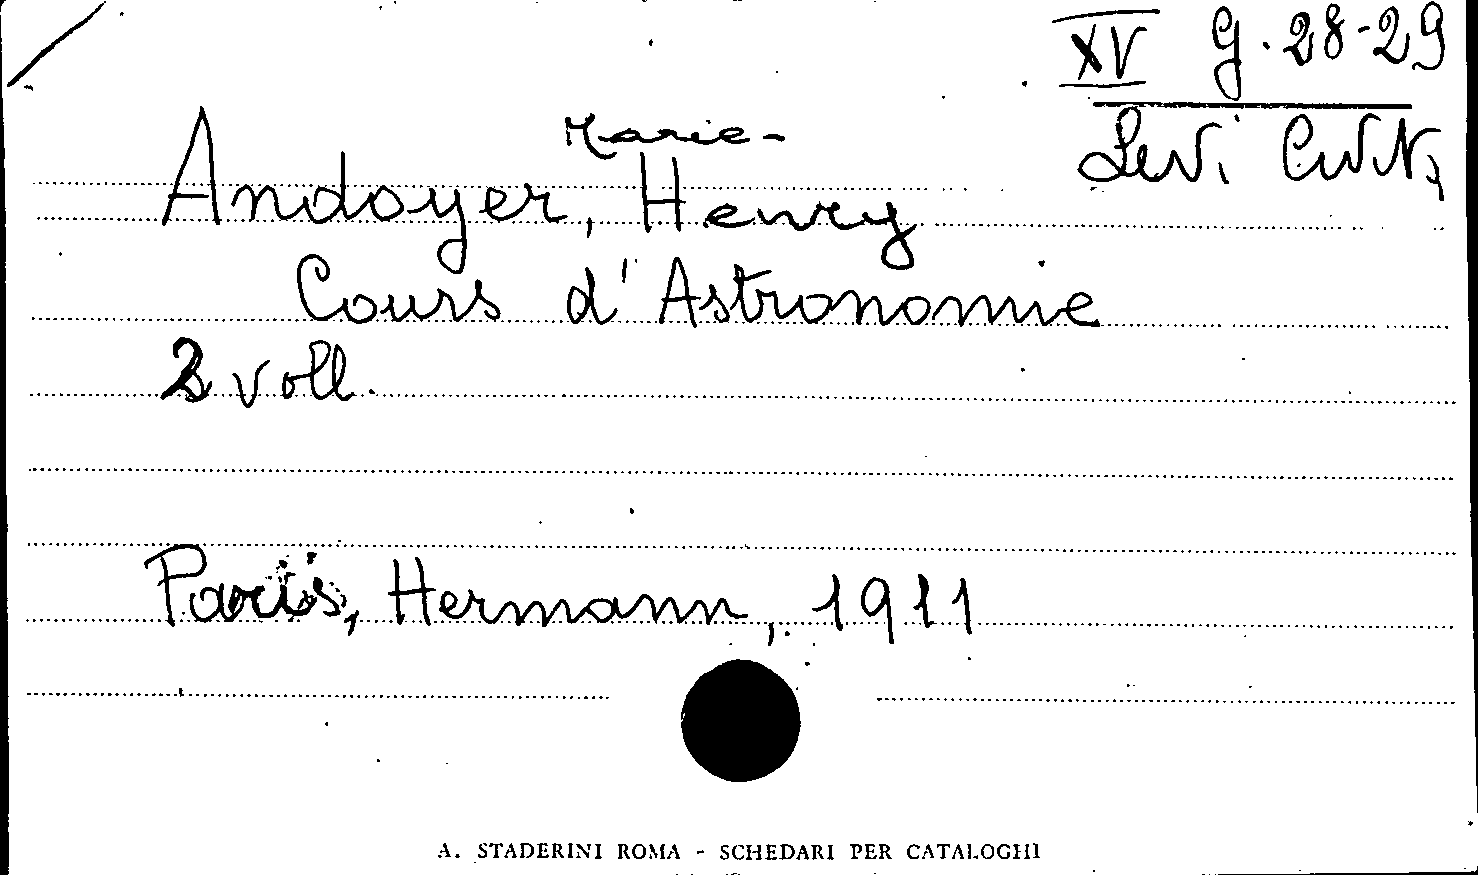 XV G. 28-29
Levi Civita
Marie-
Andoyer, Henry
Cours d'Astronomie
2 voll.
Paris, Hermann, 1911
A. STADERINI ROMA - SCHEDARI PER CATALOGHI